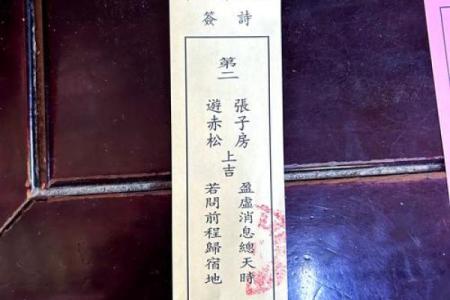 籤詩
第二
張子房
遊赤松
上吉
盈虛消息總天時
若問前程歸宿地